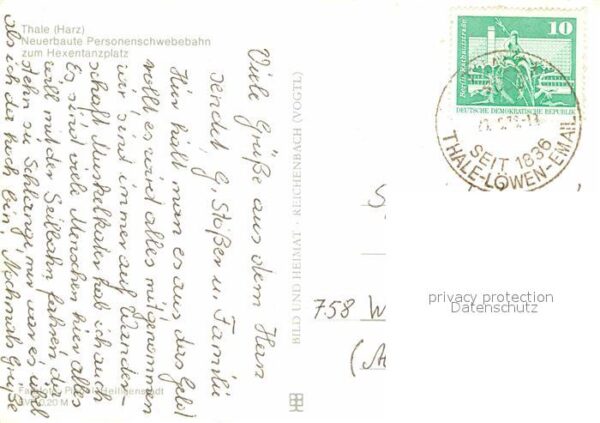 Thale (Harz)
Neuerbaute Personenschwebebahn
zum Hexentanzplatz
Viele Grüße aus dem Harz
sendet G. Stößer u. Familie
Hier hält man es aus das Geld
rollt es wird alles mitgenommen
wir sind immer auf Wander-
schaft Muskelkater hab ich auch
Es sind viele Menschen hier alles
will mit der Seilbahn fahren da
stehn sie Schlange mir war es übel
als ich da hoch bin! Nochmals Grüße
BILD UND HEIMAT · REICHENBACH (VOGTL)
Heiligenstadt
0,20 M
10
DEUTSCHE DEMOKRATISCHE REPUBLIK
SEIT 1836
THALE-LÖWEN-EMAIL
758 W
privacy protection
Datenschutz